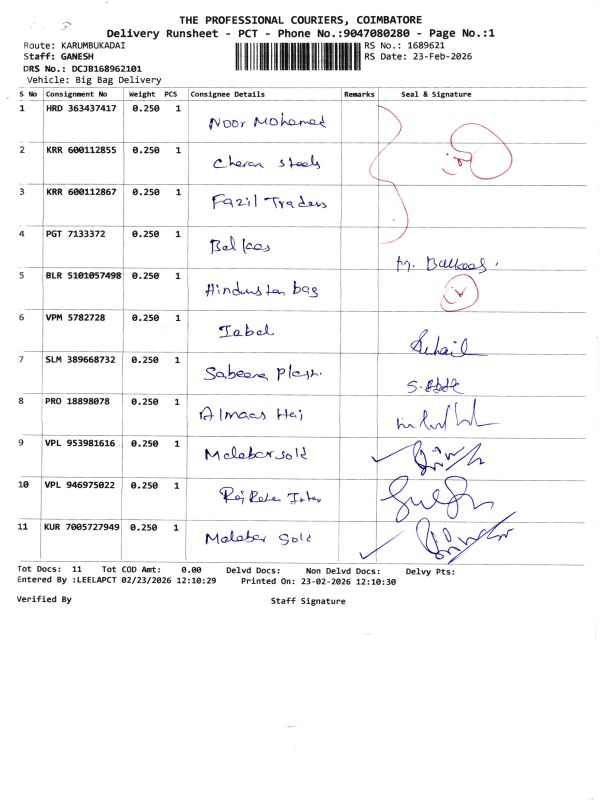 THE PROFESSIONAL COURIERS, COIMBATORE
Delivery Runsheet - PCT - Phone No.:9047080280 - Page No.:1
Route: KARUMBUKADAI RS No.: 1689621
Staff: GANESH RS Date: 23-Feb-2026
DRS No.: DCJB168962101
Vehicle: Big Bag Delivery
S No Consignment No Weight PCS Consignee Details Remarks Seal & Signature
1 HRD 363437417 0.250 1 Noor Mohamed
2 KRR 600112855 0.250 1 Cheran Steels
3 KRR 600112867 0.250 1 Fazil Traders
4 PGT 7133372 0.250 1 Balkees M. Balkees.
5 BLR 5101057498 0.250 1 Hindustan bag
6 VPM 5782728 0.250 1 Iqbal Suhail
7 SLM 389668732 0.250 1 Sabeena Plast.
8 PRO 18898078 0.250 1 Almaas Haj
9 VPL 953981616 0.250 1 Malabar Gold
10 VPL 946975022 0.250 1
11 KUR 7005727949 0.250 1 Malabar Gold
Tot Docs: 11 Tot COD Amt: 0.00 Delvd Docs: Non Delvd Docs: Delvy Pts:
Entered By :LEELAPCT 02/23/2026 12:10:29 Printed On: 23-02-2026 12:10:30
Verified By Staff Signature